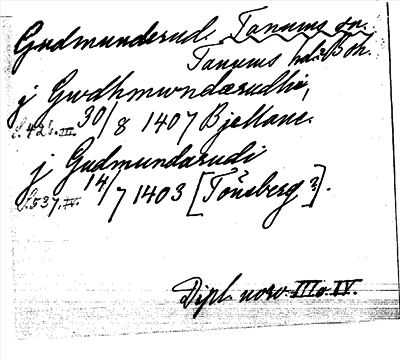 Gudmunderud. Tanums sn.
Tanums hd? Boh.
j Gwdhmwndærudhi,
S. 426. III. 30/8 1407 Bjelland.
j Gudmundarudi
S. 537. IV. 14/7 1403 [Tønsberg?].
Dipl. norv. III o. IV.